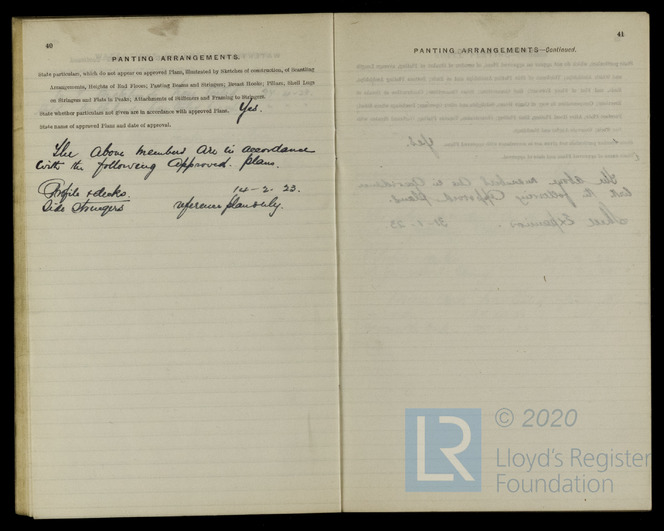 40
PANTING ARRANGEMENTS.
State particulars, which do not appear on approved Plans, illustrated by Sketches of construction, of Scantling
Arrangements, Heights of End Floors; Panting Beams and Stringers; Breast Hooks; Pillars, Shell Lugs
on Stringers and Flats in Peaks; Attachments of Stiffeners and Framing to Stringers.
State whether particulars not given are in accordance with approved Plans. Yes.
State name of approved Plans and date of approval.
The above members are in accordance
with the following approved plans.
Profile & decks 14-2-23.
Side Stringers reference plan only.
41
PANTING ARRANGEMENTS—Continued.
© 2020
LR
Lloyd's Register
Foundation